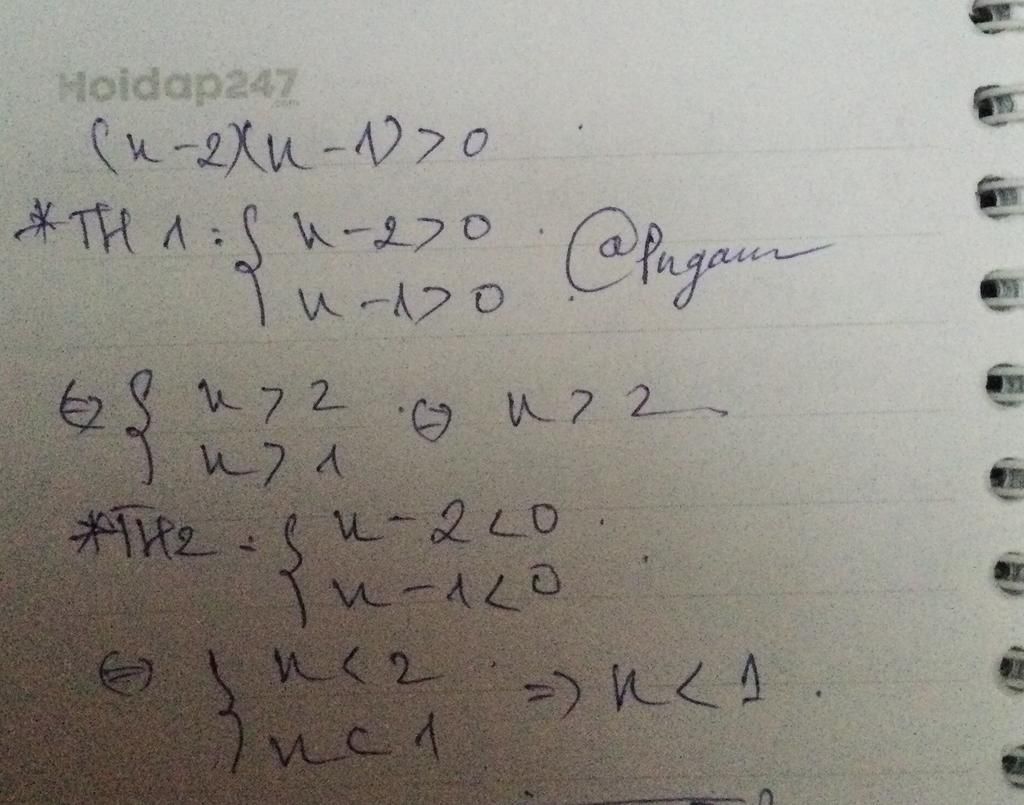 Hoidap247
(x-2)(x-1)>0
*TH1: { x-2>0
x-1>0
⇔ { x>2 ⇔ x>2
x>1
*TH2: { x-2<0
x-1<0
⇔ { x<2 ⇒ x<1.
x<1